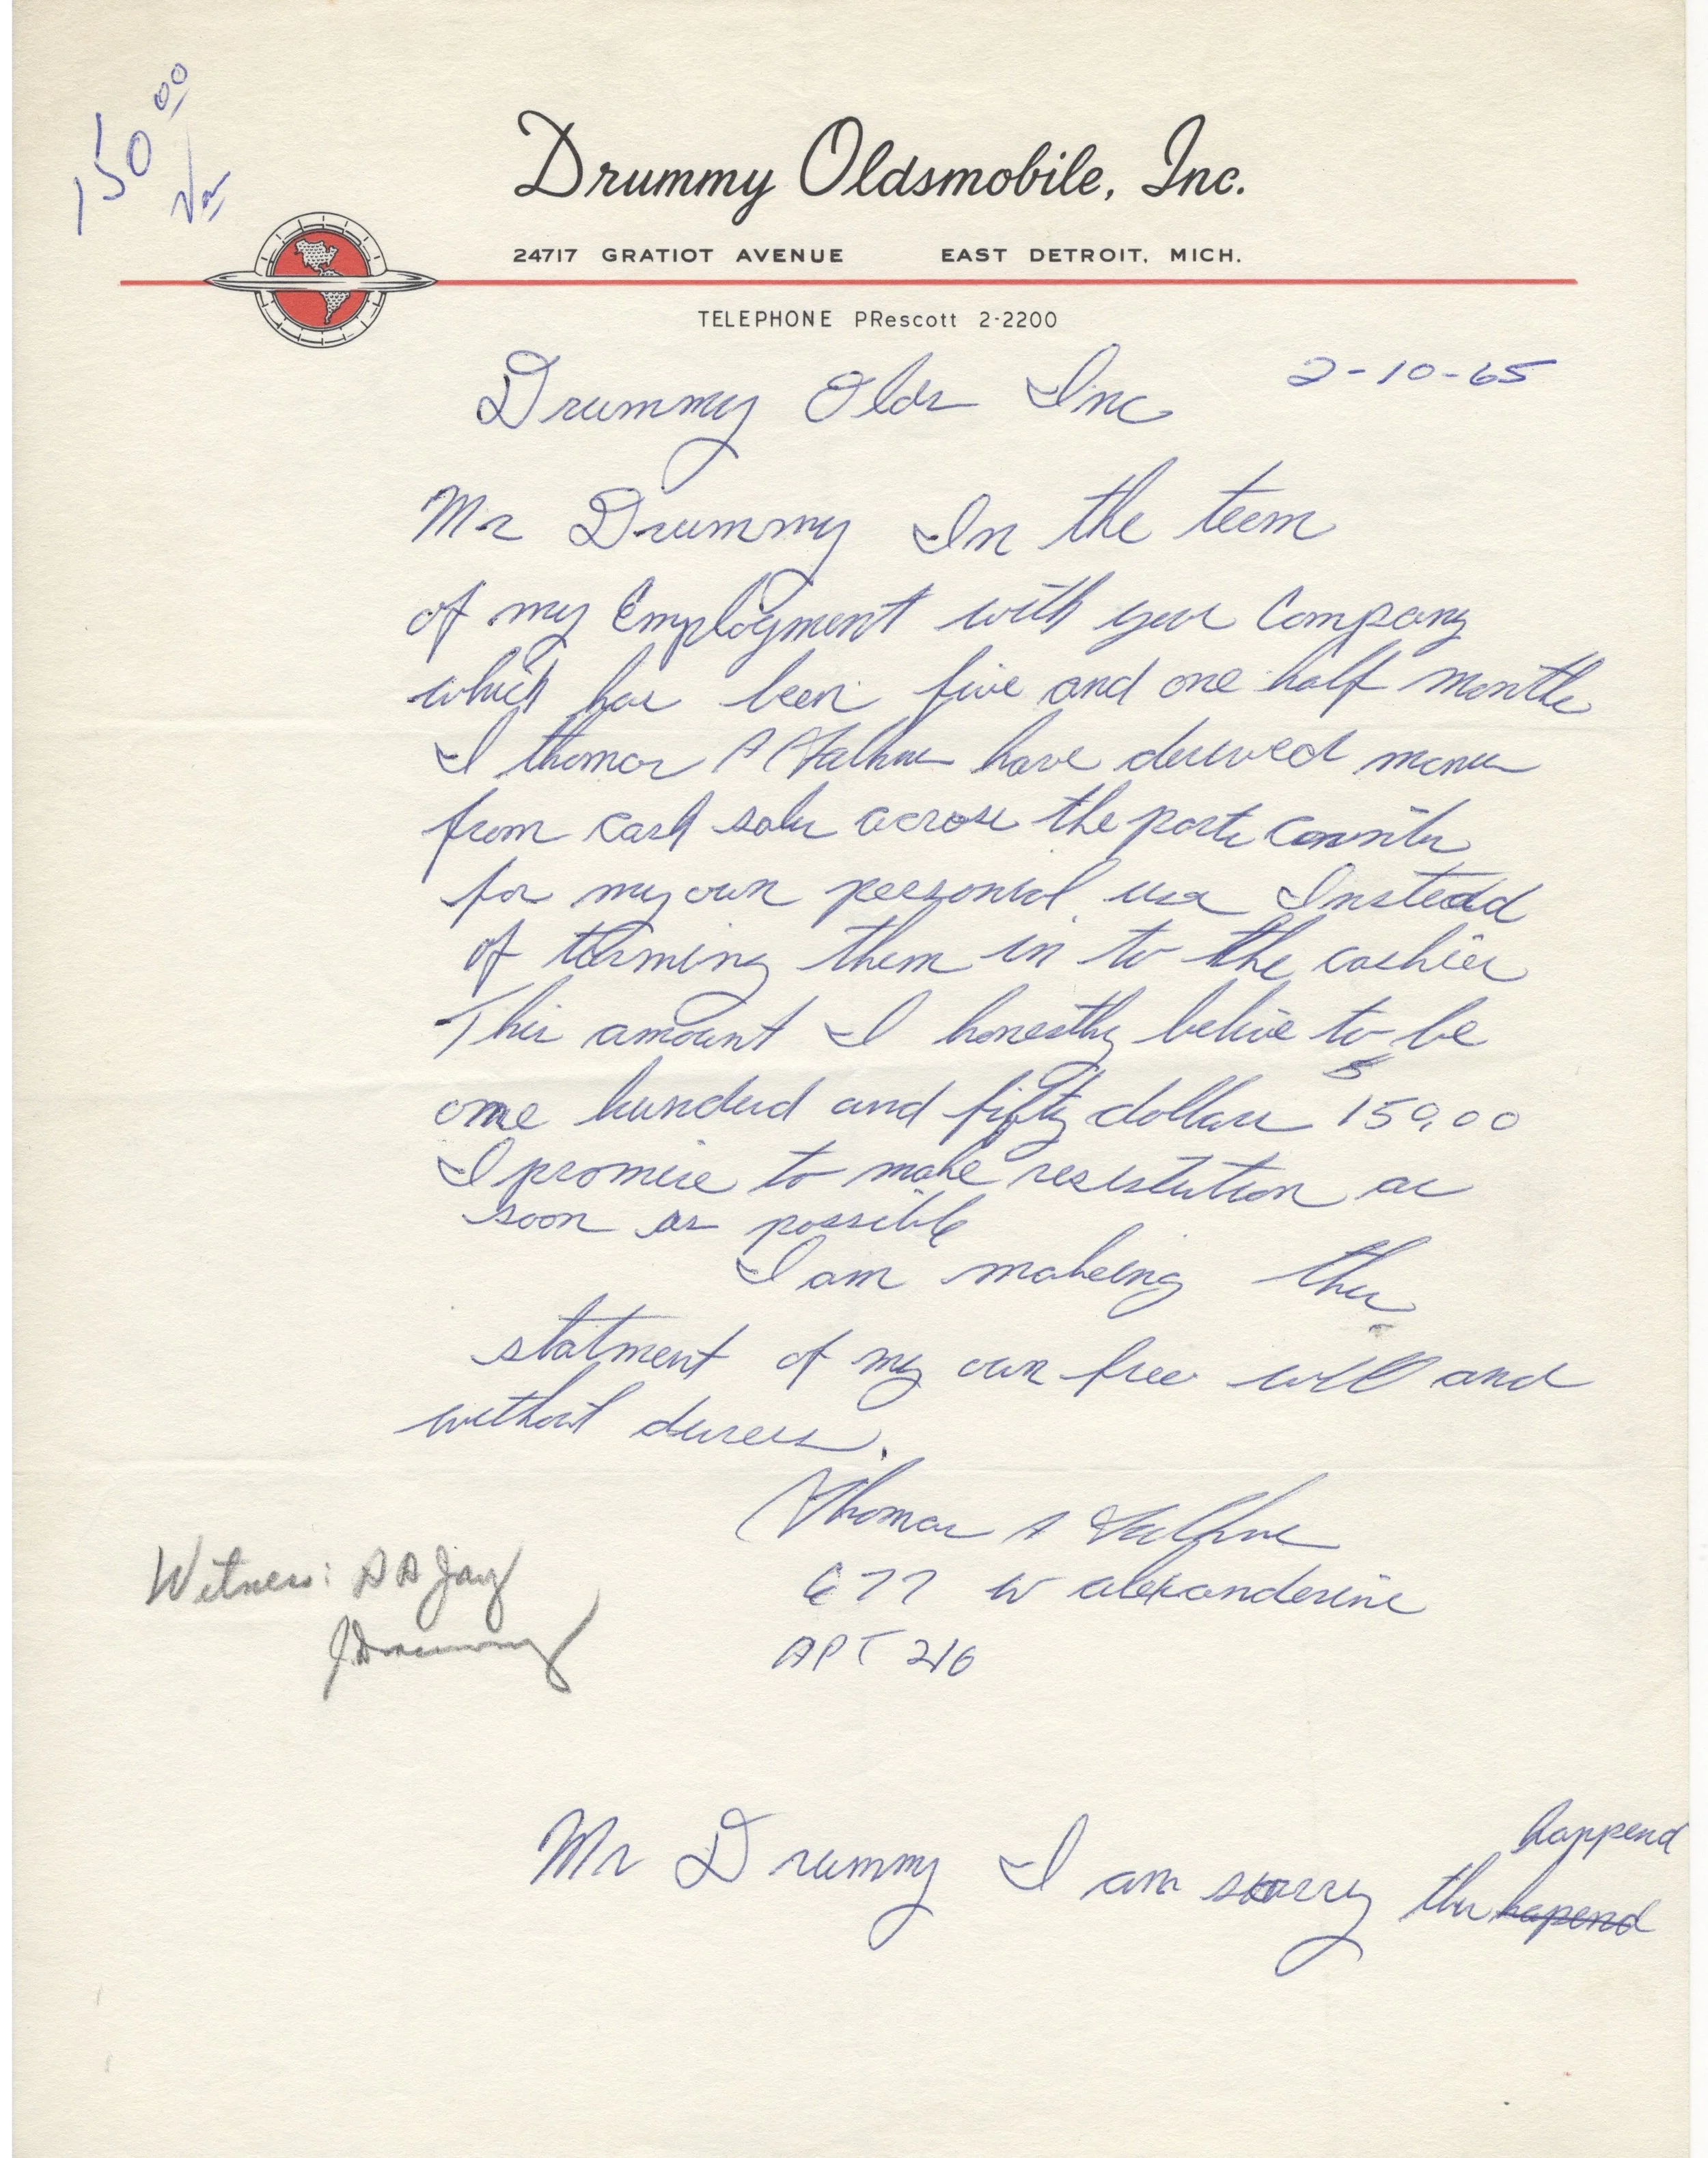 150 00
Drummy Oldsmobile, Inc.
24717 GRATIOT AVENUE EAST DETROIT, MICH.
TELEPHONE PRescott 2-2200
2-10-65
Drummy Olds Inc
Mr Drummy In the teem
of my Employment with your Company
which has been five and one half months
I thomas A have derived
from cash sales across the parts counter
for my own personal use Instead
of turning them in to the cashier
This amount I honesthy belive to be
one hundred and fifty dollars $ 150.00
I promise to make resistution as
soon as possible
I am makeing this
statment of my own free will and
without duress.
Thomas A
677 W alexanderine
APT 216
Witness: A A Jay
J Drummy
Mr Drummy I am sorry this hapend happend